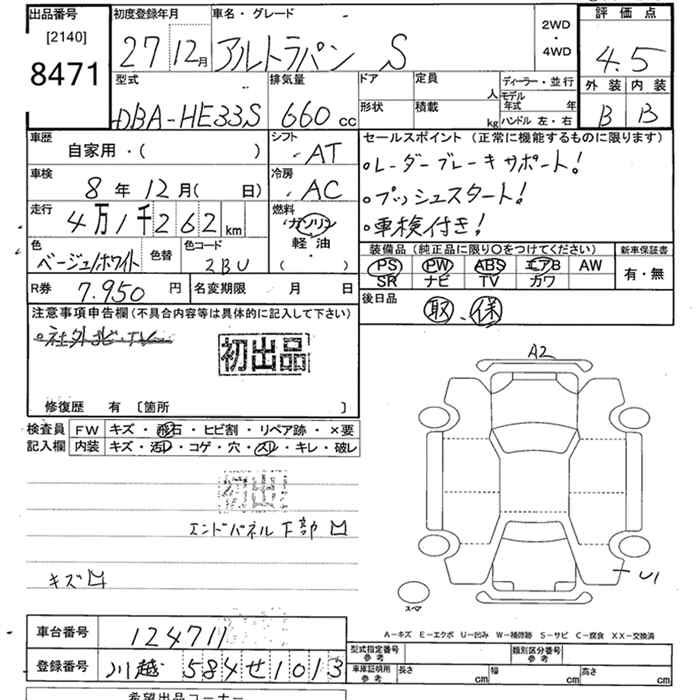 出品番号
[2140]
8471
初度登録年月
27 12月
車名・グレード
アルトラパン S
2WD
・
4WD
評価点
4.5
外装 内装
B B
型式
DBA-HE33S
排気量
660 cc
ドア
形状
定員
人
積載
kg
ディーラー・並行
モデル
年式 年
ハンドル 左・右
車歴
自家用・( )
シフト
AT
車検
8年 12月( 日)
冷房
AC
走行
4万1千262 km
燃料
ガソリン
軽油
( )
色
ベージュ/ホワイト
色替
色コード
2BU
R券 7.950 円
名変期限 月 日
セールスポイント(正常に機能するものに限ります)
○レーダーブレーキサポート!
○プッシュスタート!
○車検付き!
装備品(純正品に限り○をつけてください)
PS PW ABS エアB AW
SR ナビ TV カワ
新車保証書
有・無
後日品
取、保
注意事項申告欄(不具合内容等は具体的に記入して下さい)
・社外ナビ・TV
初出品
修復歴 有 〔箇所 〕
検査員
記入欄
FW キズ・飛石・ヒビ割・リペア跡・×要
内装 キズ・汚レ・コゲ・穴・スリ・キレ・破レ
初出品
エンドパネル下部凹
キズ凹
A2
U1
スペア
A−キズ E−エクボ U−凹み W−補修跡 S−サビ C−腐食 XX−交換済
車台番号
124711
登録番号
川越 584 せ 1013
型式指定番号
参考
類別区分番号
参考
車庫証明用
参考
長さ cm
幅 cm
高さ cm
希望出品コーナー